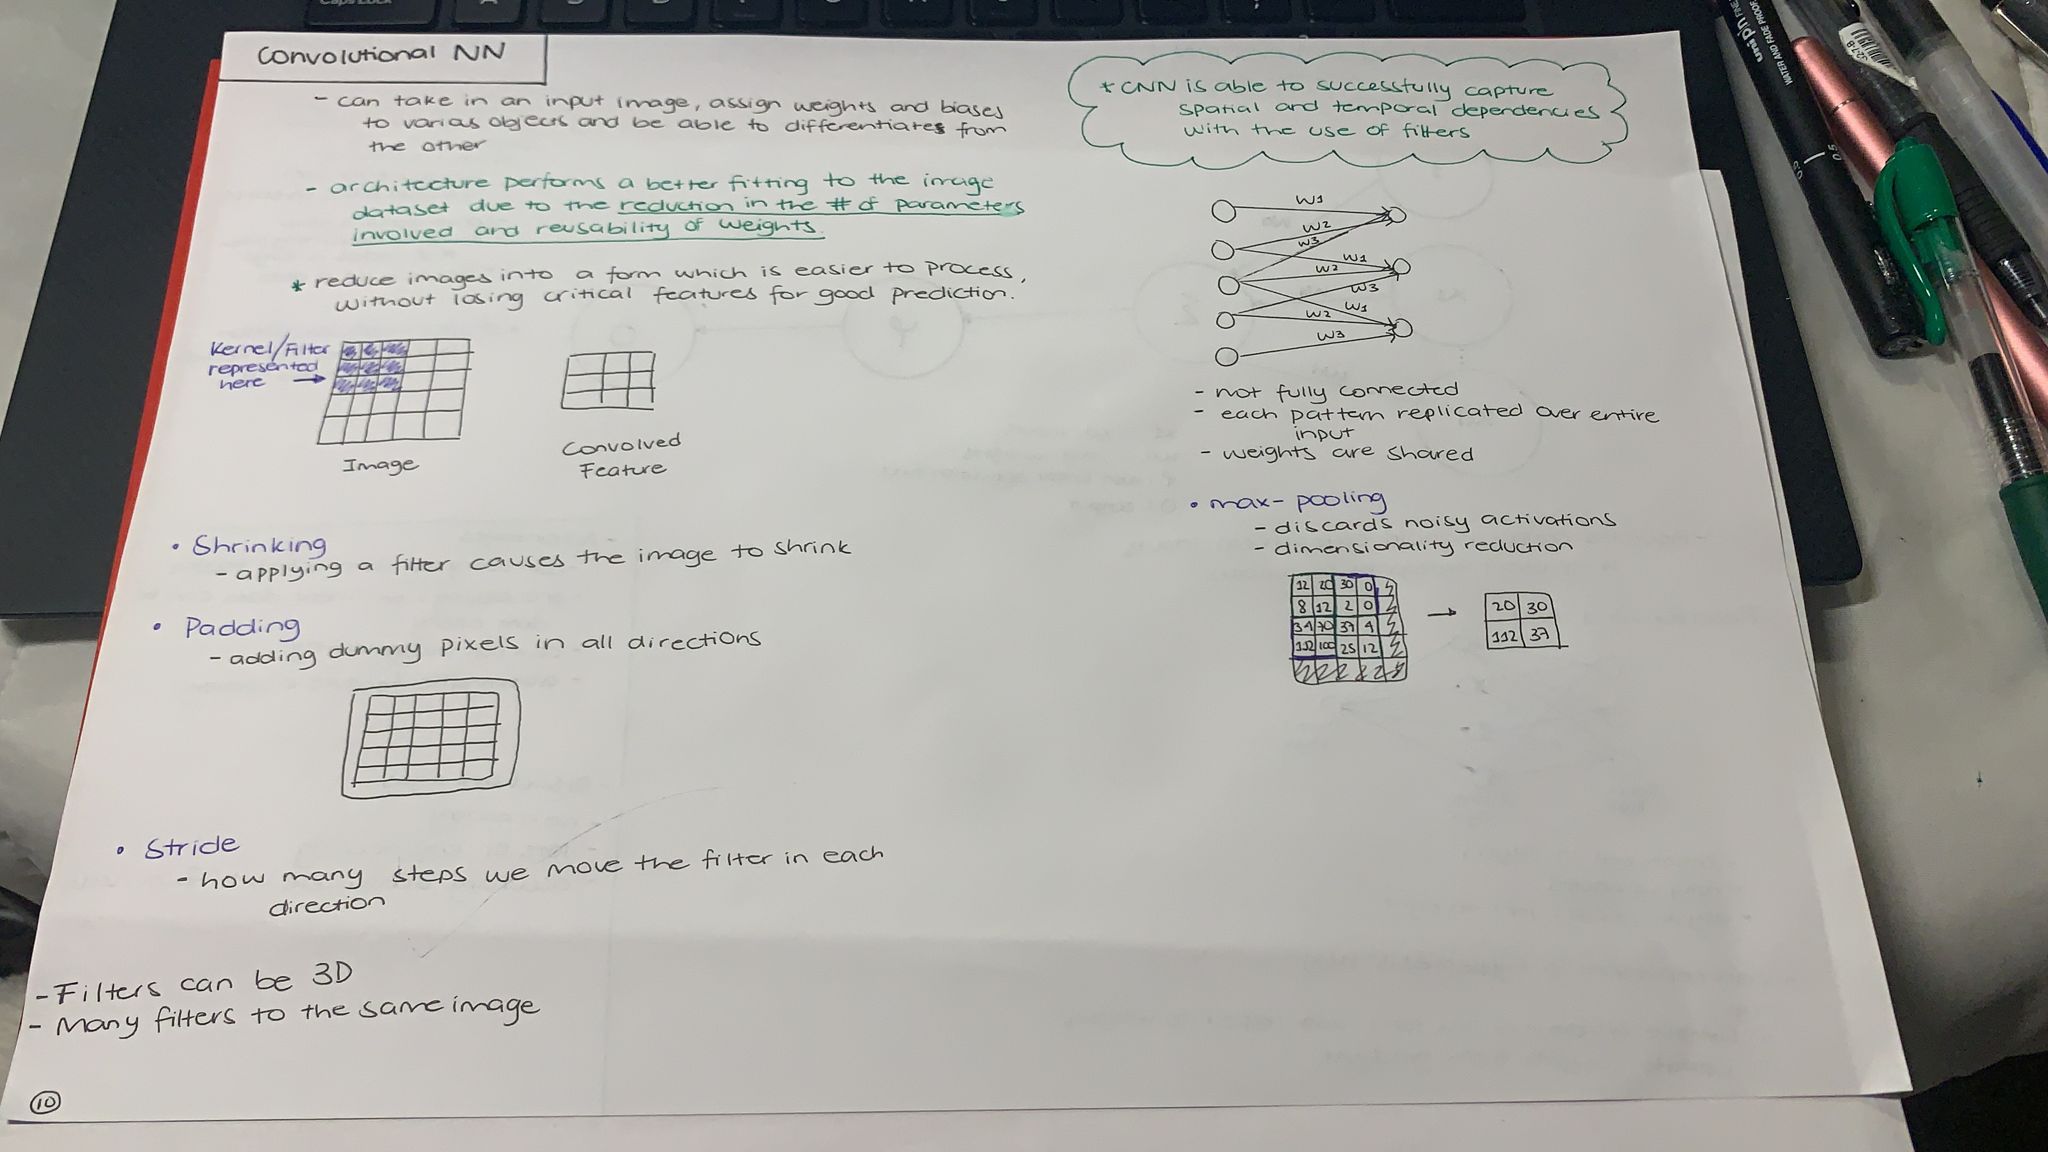 Convolutional NN
- can take in an input image, assign weights and biases
to varias objects and be able to differentiates from
the other
- architecture performs a better fitting to the image
dataset due to the reduction in the # of parameters
involved and reusability of weights.
* reduce images into a form which is easier to process,
without losing critical features for good prediction.
Kernel/Filter
represented
here →
Image
Convolved
Feature
• Shrinking
- applying a filter causes the image to shrink
• Padding
- adding dummy pixels in all directions
• Stride
- how many steps we move the filter in each
direction
- Filters can be 3D
- Many filters to the same image
10
* CNN is able to successfully capture
spatial and temporal dependencies
with the use of filters
W1
W2
W3
W1
W2
W3
W1
W2
W3
- not fully connected
- each pattern replicated over entire
input
- weights are shared
• max-pooling
- discards noisy activations
- dimensionality reduction
12 20 30 0
8 12 2 0
34 70 37 4
112 100 25 12
→
20 30
112 37
uni pin FINE
WATER AND FADE PROOF
0.5
0.5